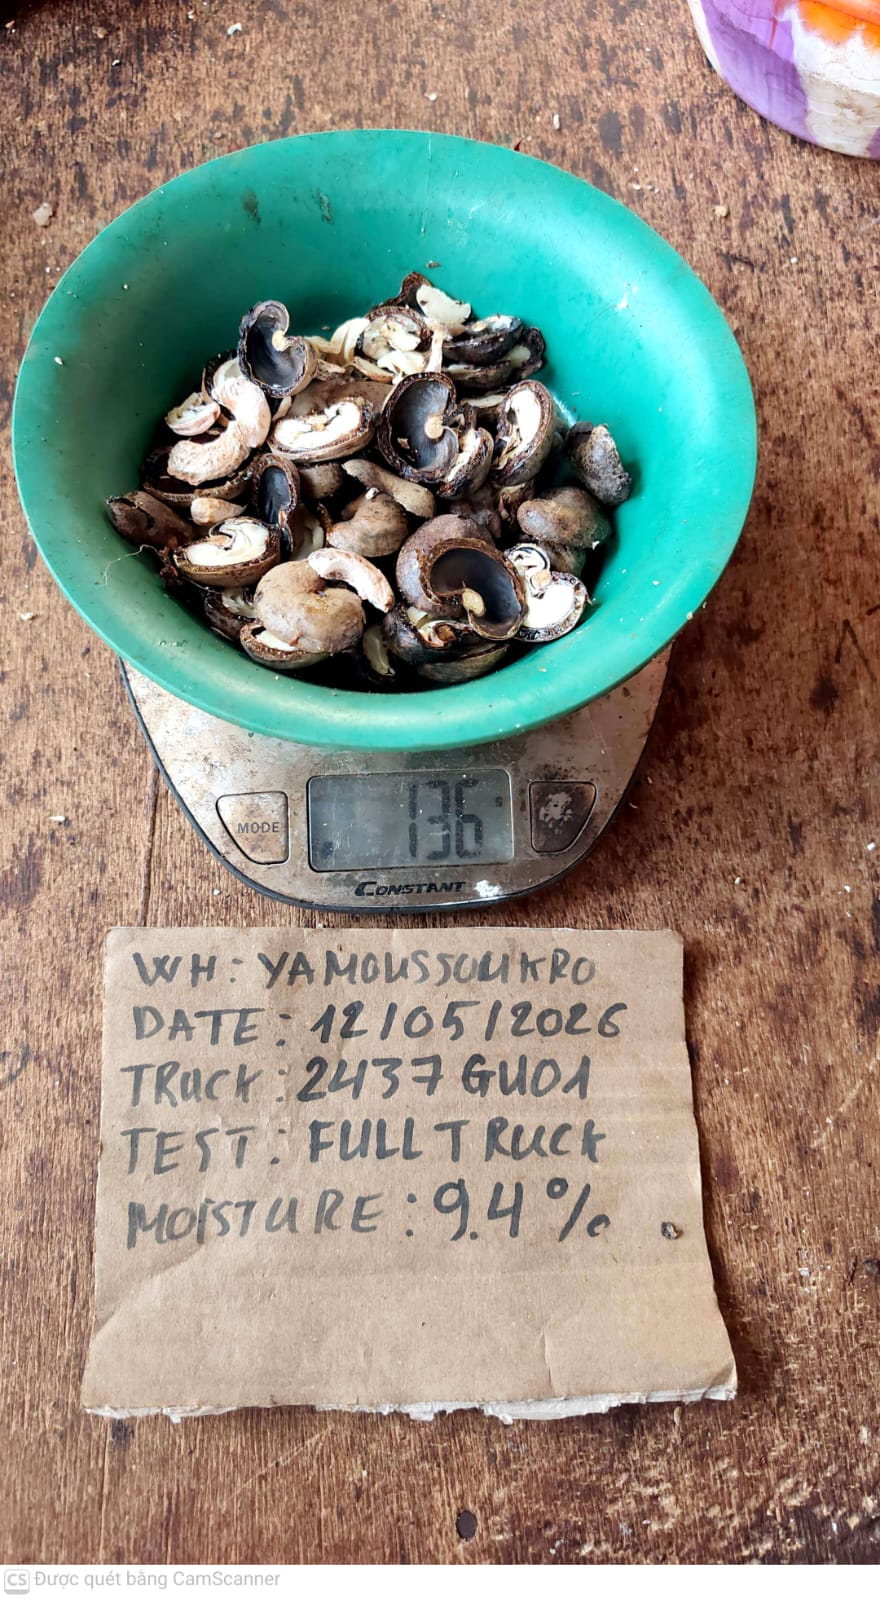 136
MODE
CONSTANT
WH: YAMOUSSOUKRO
DATE: 12/05/2026
TRUCK: 2437 GU01
TEST: FULL TRUCK
MOISTURE: 9.4%
CS Được quét bằng CamScanner